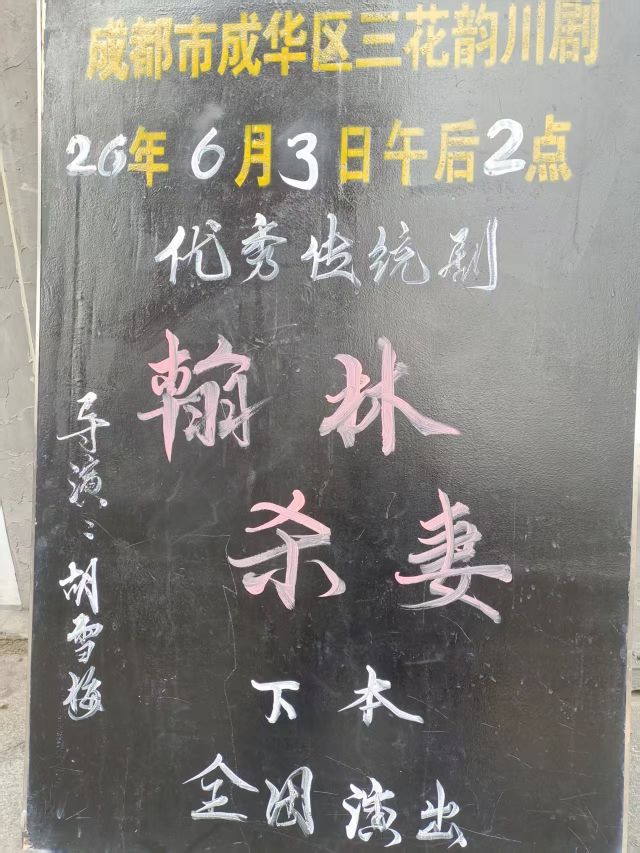 成都市成华区三花韵川剧
26年6月3日午后2点
优秀传统剧
翰林
杀妻
导演：胡雪梅
下本
全团演出